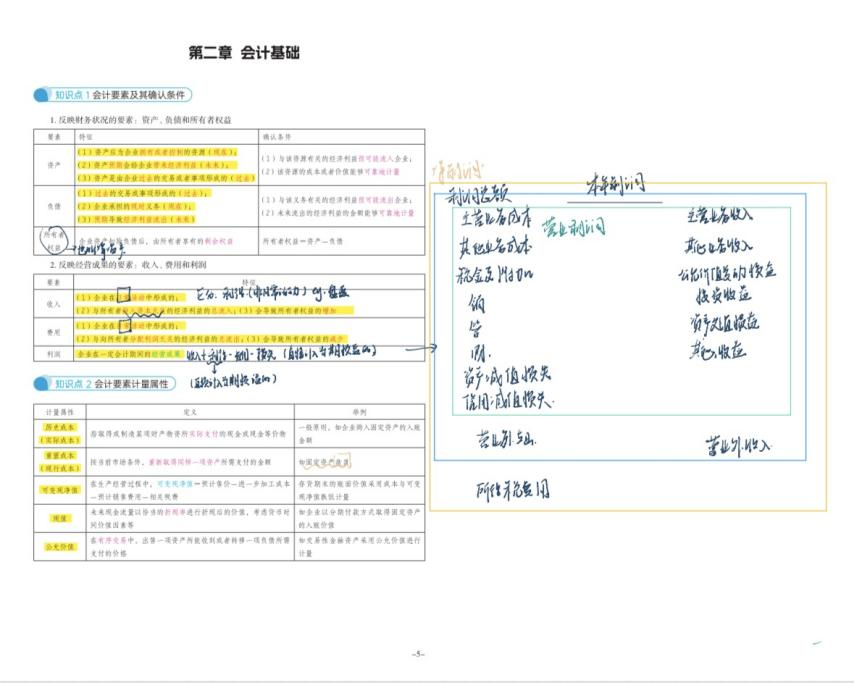 第二章 会计基础
知识点 1 会计要素及其确认条件
1. 反映财务状况的要素：资产、负债和所有者权益
要素 特征 确认条件
资产
（1）资产应为企业拥有或者控制的资源（现在）；
（2）资产预期会给企业带来经济利益（未来）；
（3）资产是由企业过去的交易或者事项形成的（过去）
（1）与该资源有关的经济利益很可能流入企业；
（2）该资源的成本或者价值能够可靠地计量
负债
（1）过去的交易或事项形成的（过去）；
（2）企业承担的现时义务（现在）；
（3）预期导致经济利益流出（未来）
（1）与该义务有关的经济利益很可能流出企业；
（2）未来流出的经济利益的金额能够可靠地计量
所有者
权益
企业资产扣除负债后，由所有者享有的剩余权益
所有者权益＝资产－负债
2. 反映经营成果的要素：收入、费用和利润
要素 特征
区分：利得（非日常活动）eg.盘盈
收入
（1）企业在日常活动中形成的；
（2）与所有者投入资本无关的经济利益的总流入；（3）会导致所有者权益的增加
费用
（1）企业在日常活动中形成的；
（2）与向所有者分配利润无关的经济利益的总流出；（3）会导致所有者权益的减少
利润 企业在一定会计期间的经营成果 收入+利得-费用-损失（直接计入当期损益的）
（直接计入当期损益的）
知识点 2 会计要素计量属性
计量属性 定义 举例
历史成本
（实际成本）
指取得或制造某项财产物资所实际支付的现金或现金等价物
一般原则，如企业购入固定资产的入账
金额
重置成本
（现行成本）
按当前市场条件，重新取得同样一项资产所需支付的金额
如固定资产盘盈
可变现净值
在生产经营过程中，可变现净值＝预计售价－进一步加工成本
－预计销售费用－相关税费
存货期末的账面价值采用成本与可变
现净值孰低计量
现值
未来现金流量以恰当的折现率进行折现后的价值，考虑货币时
间价值因素等
如企业以分期付款方式取得固定资产
的入账价值
公允价值
在有序交易中，出售一项资产所能收到或者转移一项负债所需
支付的价格
如交易性金融资产采用公允价值进行
计量
净利润
利润总额 本年利润
主营业务成本 营业利润 主营业务收入
其他业务成本 其他业务收入
税金及附加 公允价值变动损益
销 投资收益
管 资产处置损益
财 其他收益
资产减值损失
信用减值损失
营业外支出 营业外收入
所得税费用
-5-